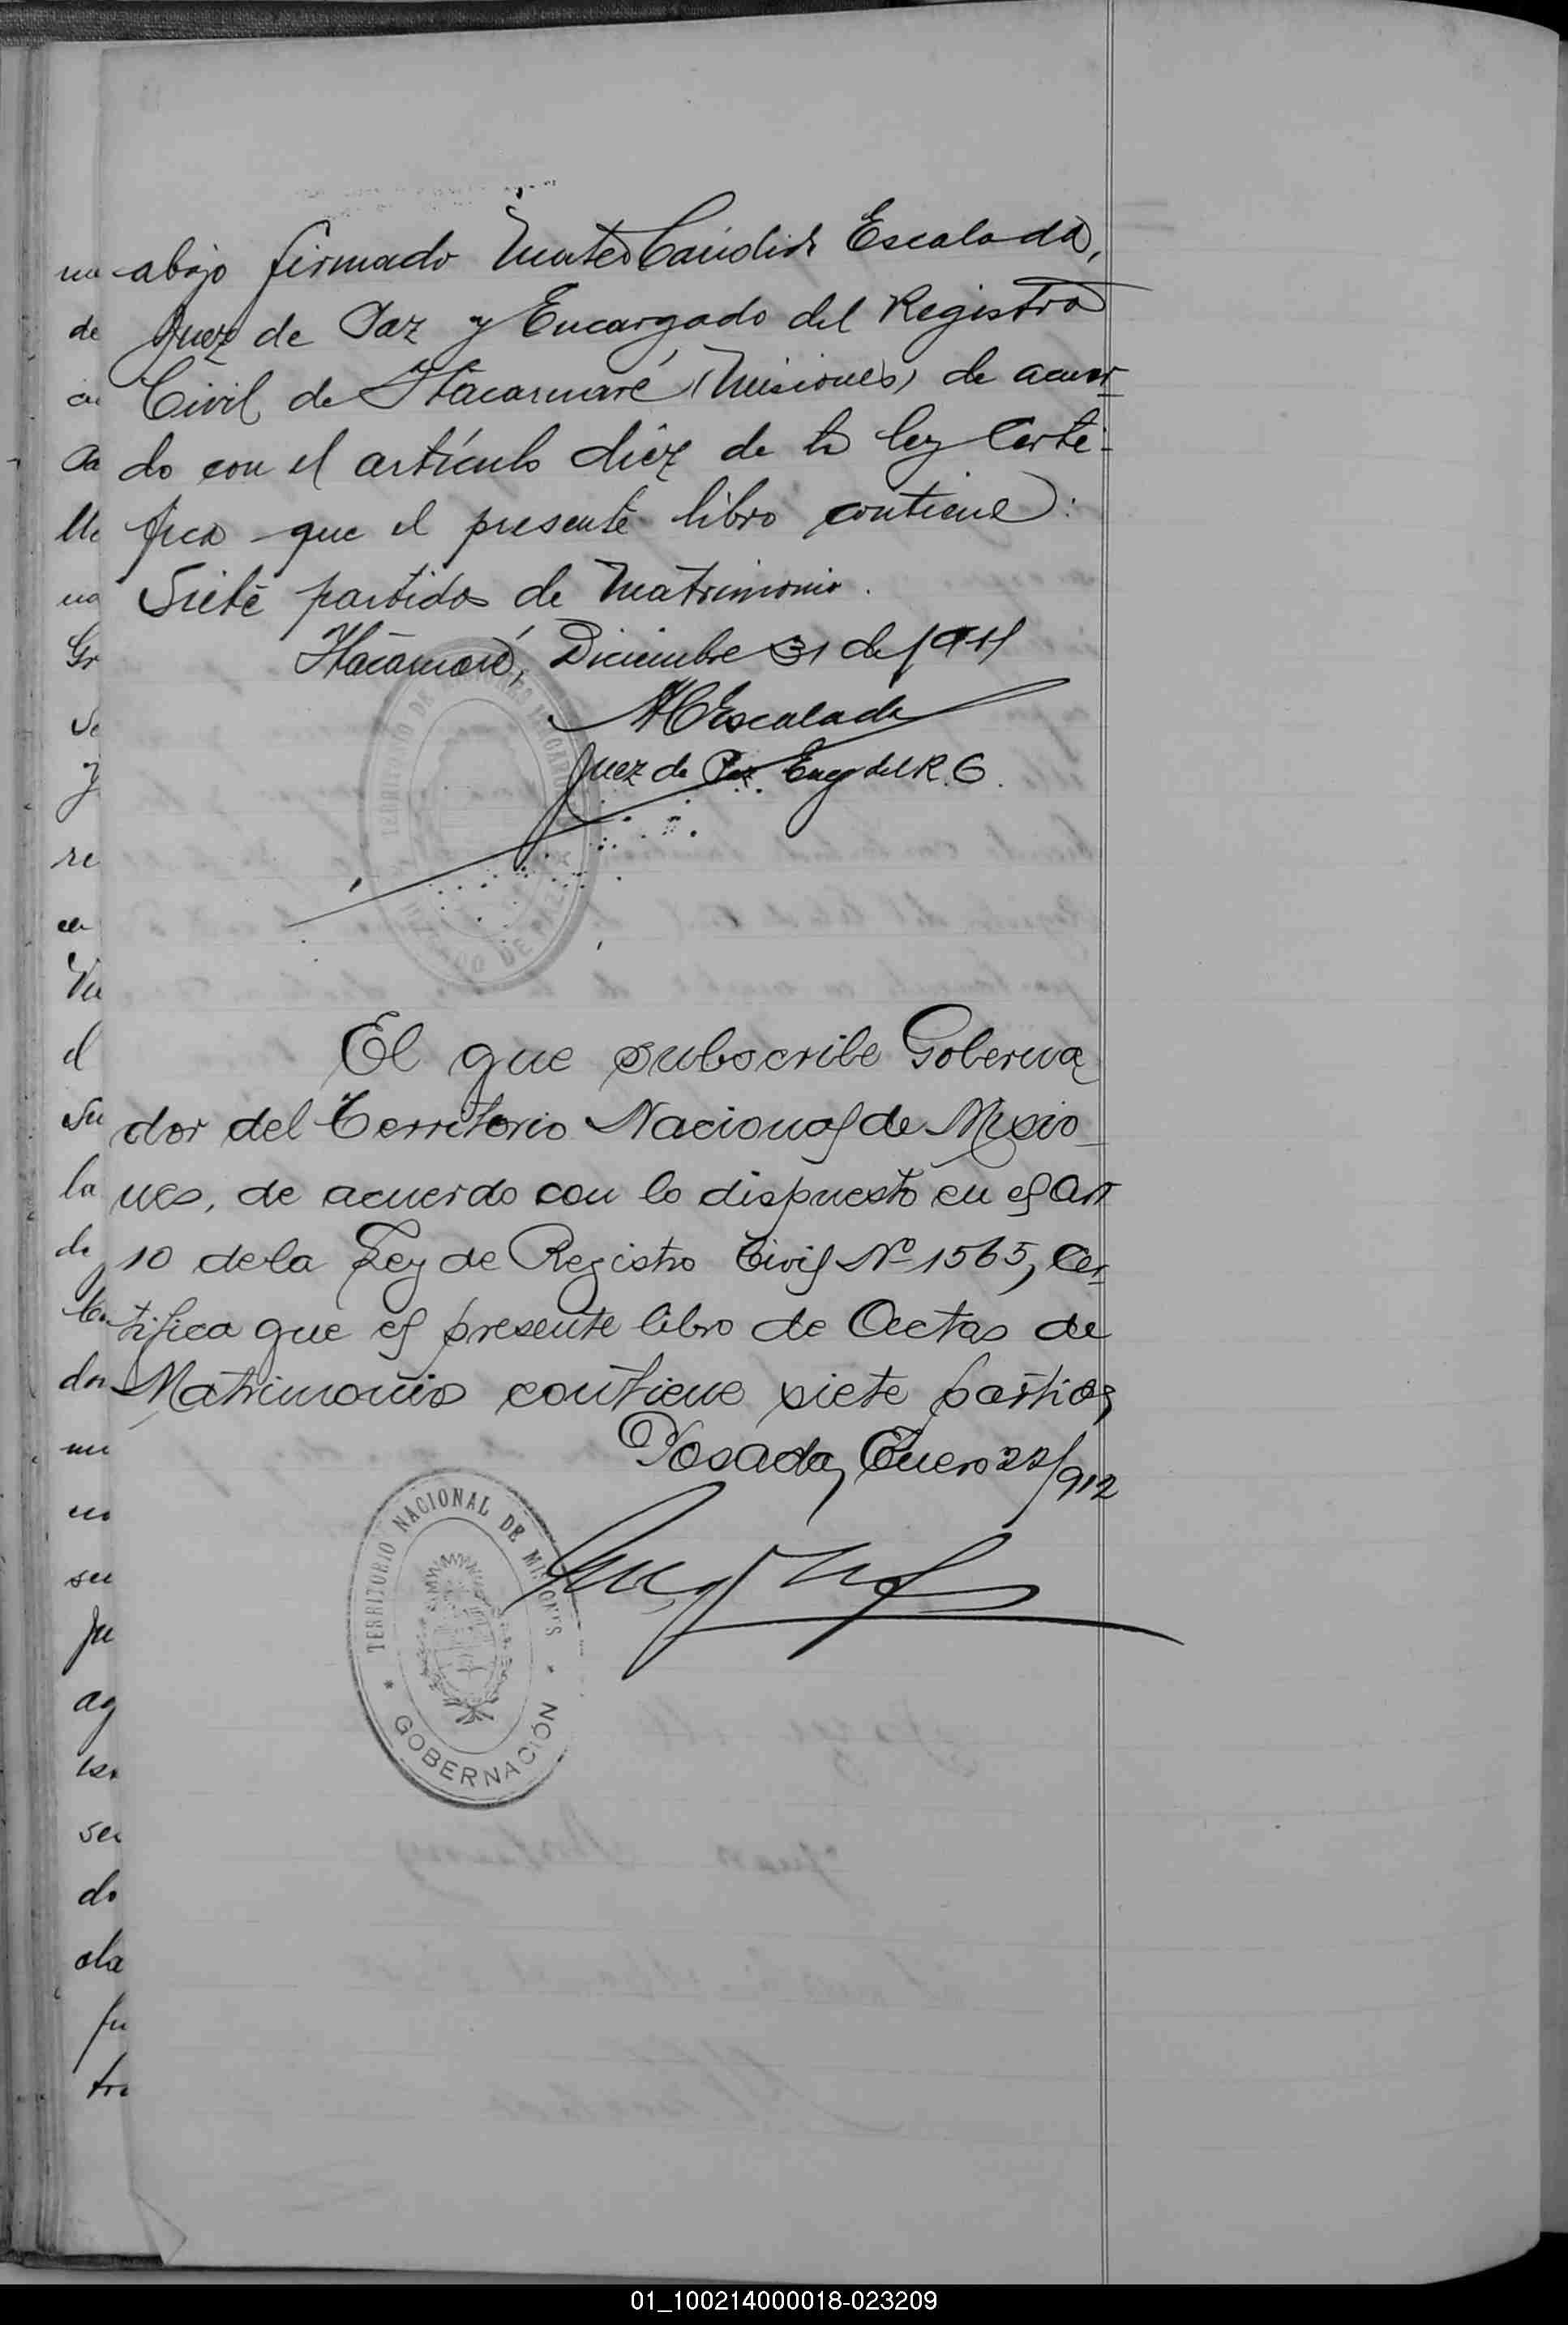 abajo firmado Mateo Cándido Escalada,
Juez de Paz y Encargado del Registro
Civil de Itacaruaré (Misiones) de acuer-
do con el artículo diez de la ley Certi-
fica que el presente libro contiene:
Siete partidas de Matrimonio.
Itacaruaré, Diciembre 31 de 1911
MCEscalada
Juez de Paz Encg del R. C.
El que subscribe Goberna
dor del Territorio Nacional de Misio
nes, de acuerdo con lo dispuesto en el Art
10 de la Ley de Registro Civil Nº 1565, Cer
tifica que el presente libro de Actas de
Matrimonio contiene siete partidas
Posadas, Enero 22/912
TERRITORIO NACIONAL DE MISIONES
* GOBERNACIÓN *
01_100214000018-023209